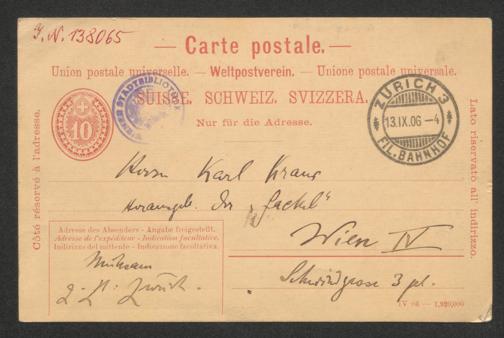 J.N. 138065
— Carte postale. —
Union postale universelle. — Weltpostverein. — Unione postale universale.
SUISSE. SCHWEIZ. SVIZZERA.
Nur für die Adresse.
Côté réservé à l'adresse.
10
WIENER STADTBIBLIOTHEK
ZÜRICH 3
13.IX.06 –4
FIL. BAHNHOF
Lato riservato all' indirizzo.
Herrn Karl Kraus
Herausgeb. der „Fackel"
Wien IV
Schwindgasse 3 pt.
Adresse des Absenders - Angabe freigestellt.
Adresse de l'expéditeur - Indication facultative.
Indirizzo del mittente - Indicazione facoltativa.
Mühsam
z. Zt. Zürich.
IV 06 — 1,920,000